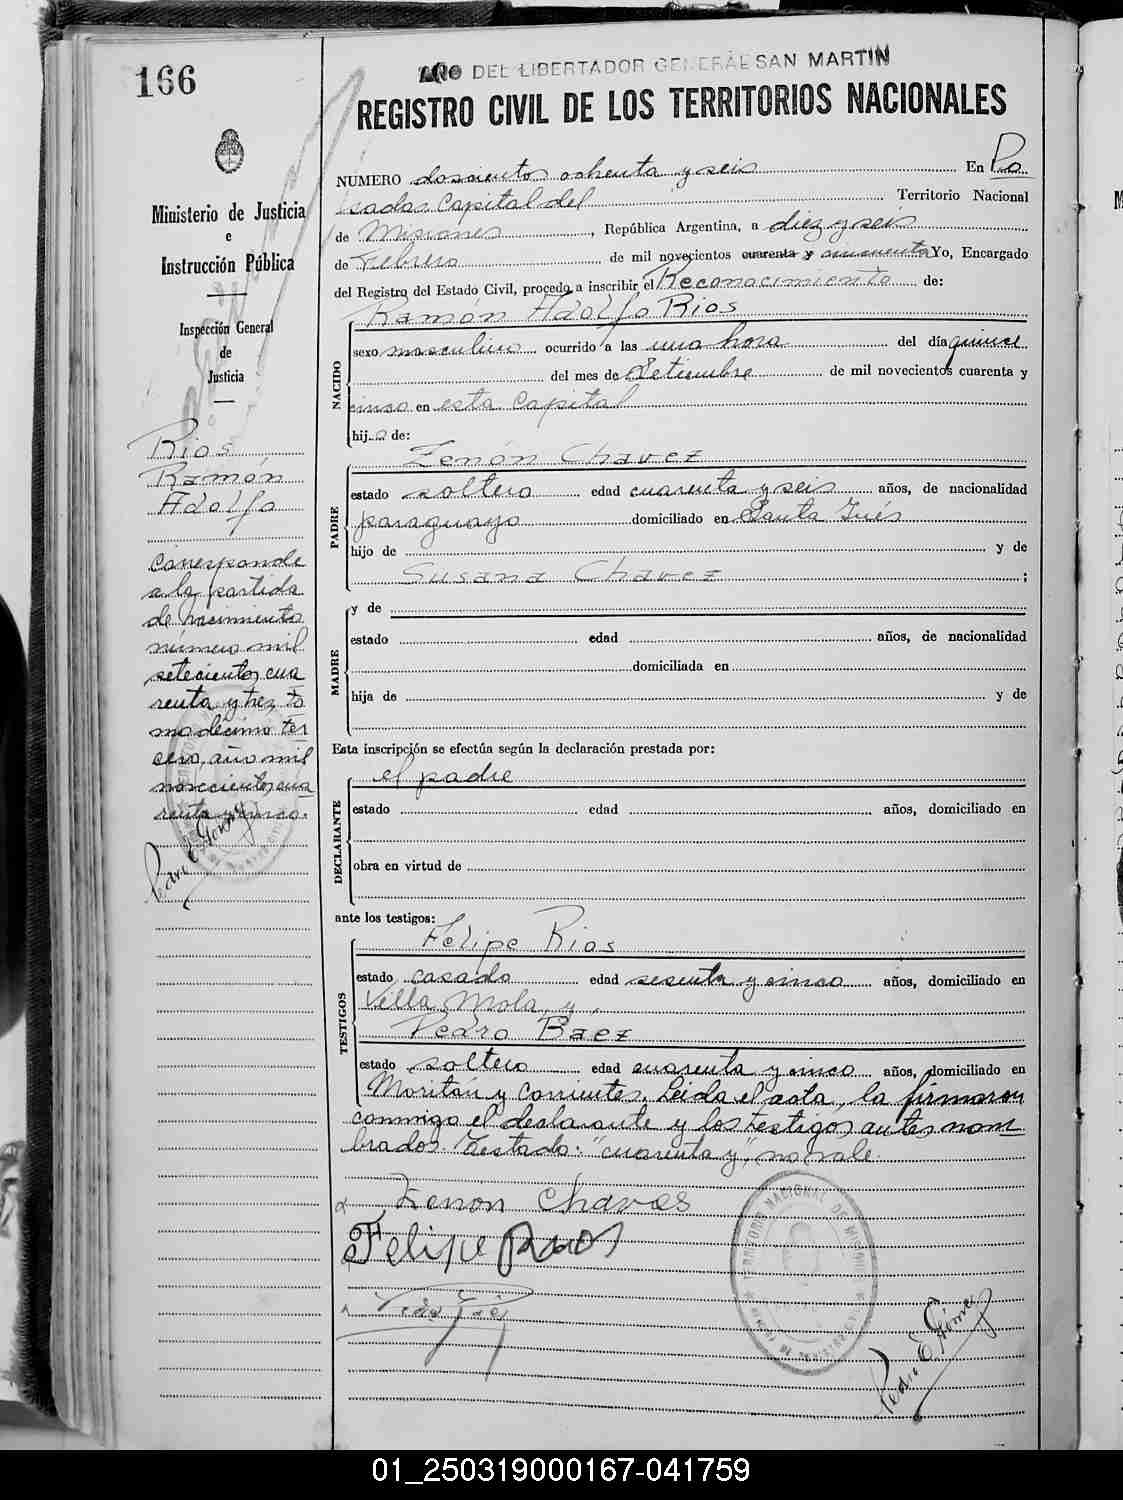 166
AÑO DEL LIBERTADOR GENERAL SAN MARTIN
REGISTRO CIVIL DE LOS TERRITORIOS NACIONALES
Ministerio de Justicia
e
Instrucción Pública
Inspección General
de
Justicia
Rios
Ramón
Adolfo
Corresponde
a la partida
de nacimiento
número mil
setecientos cua
renta y tres, to
mo décimo ter
cero, año mil
novecientos cua
renta y cinco.
Pedro E Gómez
NUMERO doscientos ochenta y seis En Po
sadas Capital del Territorio Nacional
de Misiones, República Argentina, a diez y seis
de Febrero de mil novecientos cuarenta y cincuenta Yo, Encargado
del Registro del Estado Civil, procedo a inscribir el Reconocimiento de:
Ramón Adolfo Rios
NACIDO
sexo masculino ocurrido a las una hora del día quince
del mes de Setiembre de mil novecientos cuarenta y
cinco en esta Capital
hijo de:
Zenón Chavez
PADRE
estado soltero edad cuarenta y seis años, de nacionalidad
paraguayo domiciliado en Santa Inés
hijo de y de
Susana Chavez ;
MADRE
y de
estado edad años, de nacionalidad
domiciliada en
hija de y de
Esta inscripción se efectúa según la declaración prestada por:
el padre
DECLARANTE
estado edad años, domiciliado en
obra en virtud de
ante los testigos:
Felipe Rios
TESTIGOS
estado casado edad sesenta y cinco años, domiciliado en
Villa Mola y
Pedro Baez
estado soltero edad cuarenta y cinco años, domiciliado en
Moritán y Corrientes. Leida el acta, la firmaron
conmigo el declarante y los testigos antes nom
brados. Testado: "cuarenta y", no vale.
Zenón Chaves
Felipe Rios
Pedro Baez
TERRITORIO NACIONAL DE MISIONES
Pedro E Gómez
01_250319000167-041759